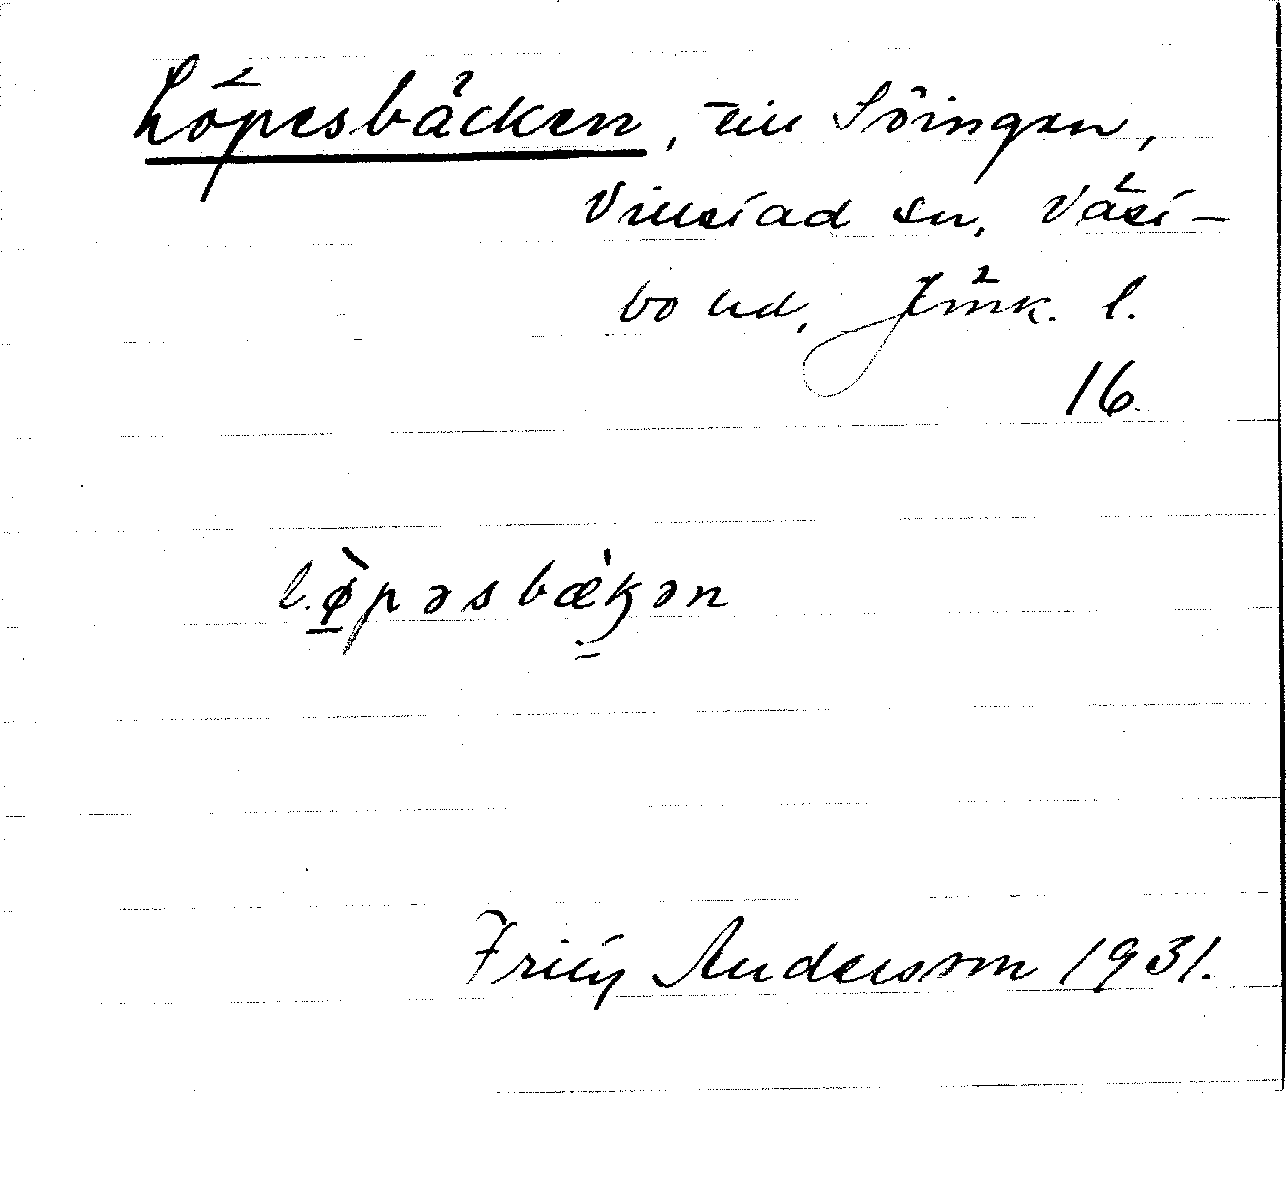 Löpesbäcken, till Söingen,
Villstad sn, Väst-
bo hd, Jönk. l.
16
lø̀pəsbæ̀kən
Fritz Andersson 1931.